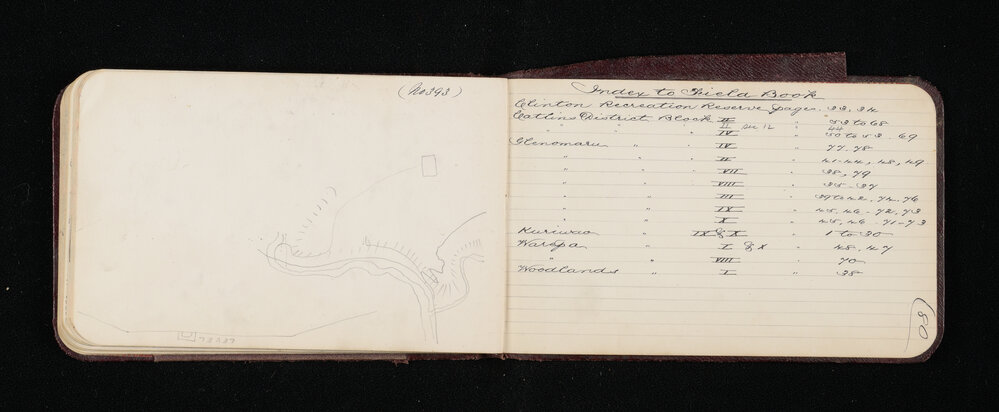 (No 393)
Index to Field Book
Clinton Recreation Reserve pages 33, 34
Catlins District Block III " 53 to 68
" " " II sec 12 " 44
" " " IV " 50 to 53. 69
Glenomaru " " IV " 77. 78
" " " II " 41-44, 48, 49
" " " VII " 38, 79
" " " VIII " 35-37
" " " III " 39 to 42, 74. 76
" " " IX " 45, 46 - 72, 73
" " " X " 45, 46 - 71-73
Kuriwao " IX & X " 1 to 30
Warepa " I & X " 48, 47
" " VIII " 70
Woodlands " I " 38
(80)